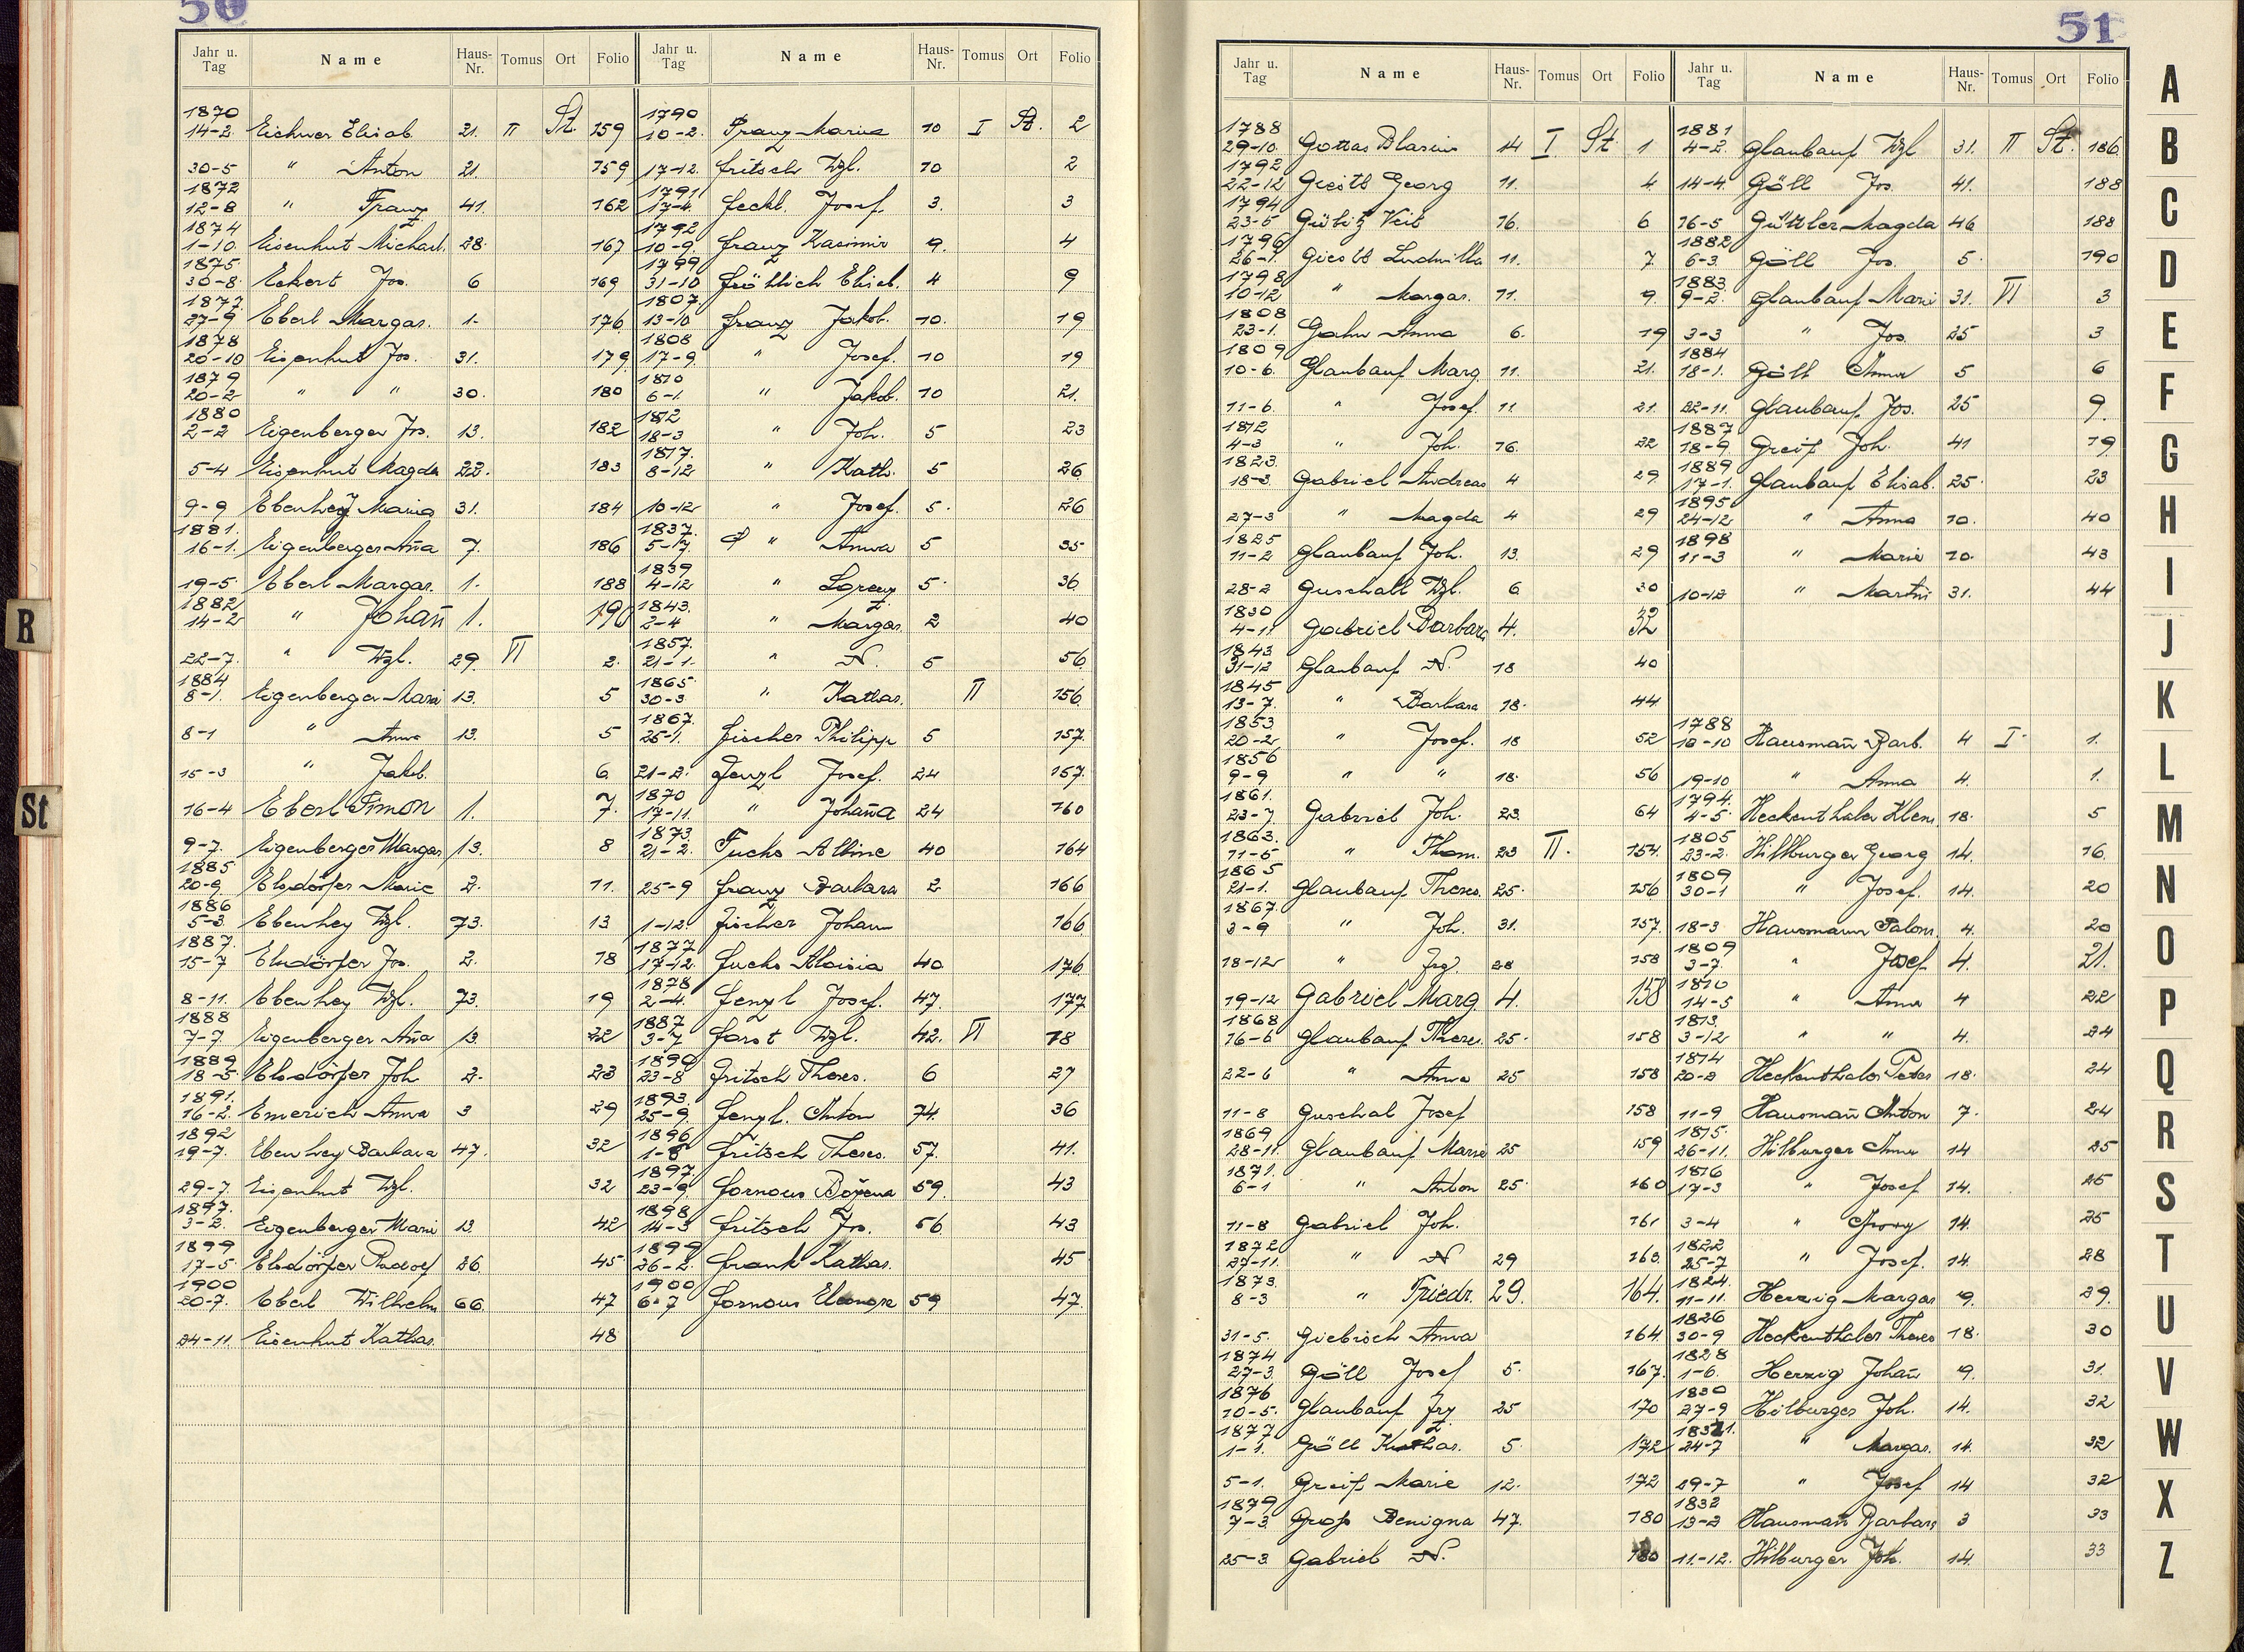 50
Jahr u. Tag Name Haus-Nr. Tomus Ort Folio
1870
14-2. Eichner Elisab. 21. II St. 159
30-5 " Anton 21. 159
1872
12-8 " Franz 41. 162
1874
1-10. Eisenhut Michael. 28. 167
1875.
30-8. Eckert Jos. 6 169
1877.
27-9 Eberl Margar. 1. 176
1878
20-10 Eisenhut Jos. 31. 179
1879
20-2 " " 30. 180
1880
2-2 Eigenberger Jos. 13. 182
5-4 Eisenhut Magda 22. 183
9-9 Ebenhey Maria 31. 184
1881.
16-1. Eigenberger Aña 7. 186
19-5. Eberl Margar. 1. 188
1882
14-2 " Johañ 1. 190
22-7. " Wzl. 29. VI 2.
1884
8-1. Eigenberger Marie 13. 5
8-1 " Anna 13. 5
15-3 " Jakob. 6
16-4 Eberl Simon 1. 7.
9-7. Eigenberger Margar 13. 8
1885
20-9. Elsdörfer Marie 2. 11.
1886
5-3. Ebenhey Wzl. 73. 13
1887.
15-7 Elsdörfer Jos. 2. 18
8-11. Ebenhey Wzl. 73. 19
1888
7-7. Eigenberger Aña 13 22
1889
18-5. Elsdörfer Joh 2. 23
1891.
16-2. Emerich Anna 3 29
1892
19-7. Ebenhey Barbara 47. 32
29-7. Eisenhut Wzl. 32
1897.
3-2. Eigenberger Marie 13 42
1899
17-5. Elsdörfer Rudolf 26. 45
1900
20-7. Eberl Wilhelm 66. 47
24-11. Eisenhut Kathar. 48
Jahr u. Tag Name Haus-Nr. Tomus Ort Folio
1790
10-2. Franz Maria 10 I St. 2
17-12. Fritsch Wzl. 10 2
1791
17-4. Feckl. Josef. 3. 3
1792
10-9. Franz Kasimir 9. 4
1799
31-10 Fröhlich Elisab. 4 9
1807.
13-10 Franz Jakob. 10. 19
1808
17-9. " Josef. 10 19
1810
6-1. " Jakob. 10 21.
1812
18-3 " Joh. 5 23
1817.
8-12 " Kath. 5 26
10-12 " Josef. 5. 26
1837.
5-17. " Anna 5 35
1839
4-12 " Lorenz 5. 36
1843.
2-4 " Margar. 2 40
1857.
21-1. " N. 5 56
1865
30-3 " Kathar. II 156
1867.
25-1. Fischer Philipp 5 157.
21-2. Fenzl Josef. 24 157.
1870
17-11. " Johaña 24 160
1873.
21-2. Fuchs Albine 40 164
25-9 Franz Barbara 2 166
1-12 Fischer Johann 166
1877.
17-12. Fuchs Aloisia 40. 176
1878
2-4. Fenzl Josef. 47. 177
1887
3-7 Forst Wzl. 42. VI 18
1890
23-8 Fritsch Theres. 6 27
1893.
25-9. Fenzl. Anton 74. 36
1896
1-8 Fritsch Theres. 57. 41.
1897.
23-9. Fornous Božena 59. 43
1898
14-3 Fritsch Jos. 56 43
1899
26-2. Frank Kathar. 45
1900
6-7 Fornous Eleonore 59 47.
51
Jahr u. Tag Name Haus-Nr. Tomus Ort Folio
1788
29-10. Gottas Blasius 14 I St. 1
1792
22-12 Giestl Georg 11. 4
1794
23-5 Gübitz Veit 16. 6
1796
26-1. Giestl Ludmilla 11. 7.
1798
10-12 " Margar. 11. 9.
1808
23-1. Gahn Anna 6. 19
1809
10-6. Glaubauf Marg 11. 21.
11-6. " Josef. 11 21.
1812
4-3 " Joh. 16. 22
1823.
18-3. Gabriel Andreas 4 29.
27-3 " Magda 4 29
1825
11-2 Glaubauf Joh. 13. 29
28-2 Guschall Wzl. 6 30
1830
4-11 Gabriel Barbara 4. 32
1843
31-12 Glaubauf N. 18 40
1845
13-7. " Barbara 18. 44
1853
20-2 " Josef. 18 52
1856
9-9 " " 18. 56
1861.
23-7. Gabriel Joh. 23. 64
1863.
11-5 " Thom. 23 II. 154.
1865
21-1. Glaubauf Theres. 25. 156
1867.
3-9 " Joh. 31. 157.
18-12 " Frz. 28 158
19-12 Gabriel Marg. 4. 158
1868
16-6 Glaubauf Theres. 25. 158
22-6 " Anna 25 158
11-8 Guschal Josef 158
1869
28-11. Glaubauf Marie 25 159
1871.
6-1 " Anton 25. 160
11-8 Gabriel Joh. 161
1872
27-11. " N 29 163.
1873.
8-3 " Friedr. 29. 164.
31-5. Giebisch Anna 164
1874
27-3. Göll Josef 5. 167.
1876
10-5. Glaubauf Frz 25 170
1877
1-1. Göll Kathar. 5. 172
5-1. Greif Marie 12. 172
1879
7-3. Groß Benigna 47. 180
25-3. Gabriel N. 180
Jahr u. Tag Name Haus-Nr. Tomus Ort Folio
1881
4-2. Glaubauf Wzl 31. II St. 186.
14-4. Göll Jos. 41. 188
16-5 Gützler Magda 46 188
1882
6-3. Göll Jos. 5. 190
1883.
9-2. Glaubauf Marie 31. VI 3
3-3 " Jos. 25 3
1884
18-1. Göll Anna 5 6
22-11. Glaubauf Jos. 25 9.
1887
18-9. Greif Joh. 41 19
1889
17-1. Glaubauf Elisab. 25. 23
1895
24-12 " Anna 70. 40
1898
11-3 " Marie 70. 43
10-12 " Martin 31. 44
1788
18-10 Hausmañ Barb. 4 I. 1.
19-10 " Anna 4. 1.
1794.
4-5. Heckenthaler Klem. 18. 5
1805
23-2. Hilburger Georg 14. 16.
1809
30-1 " Josef. 14. 20
18-3 Hausmann Salom. 4. 20
1809
3-7. " Josef 4. 21.
1810
14-5 " Anna 4 22
1813.
3-12 " " 4. 24
1814
20-2 Heckenthaler Peter 18. 24
11-9 Hausmañ Anton 7. 24
1815.
26-11. Hilburger Anna 14 25
1816
17-3 " Josef 14. 25
3-4 " Georg 14. 25
1822
25-7 " Josef. 14. 28
1824.
11-11. Herzig Margar 9. 29.
1826
30-9 Heckenthaler Theres 18. 30
1828
1-6. Herzig Johañ 9. 31.
1830
27-9 Hilburger Joh. 14. 32
1831.
24-7 " Margar. 14. 32
29-7 " Josef 14 32
1832
13-2 Hausmañ Barbara 3 33
11-12. Hilburger Joh. 14. 33
A
B
C
D
E
F
G
H
I
J
K
L
M
N
O
P
Q
R
S
T
U
V
W
X
Z
R
St